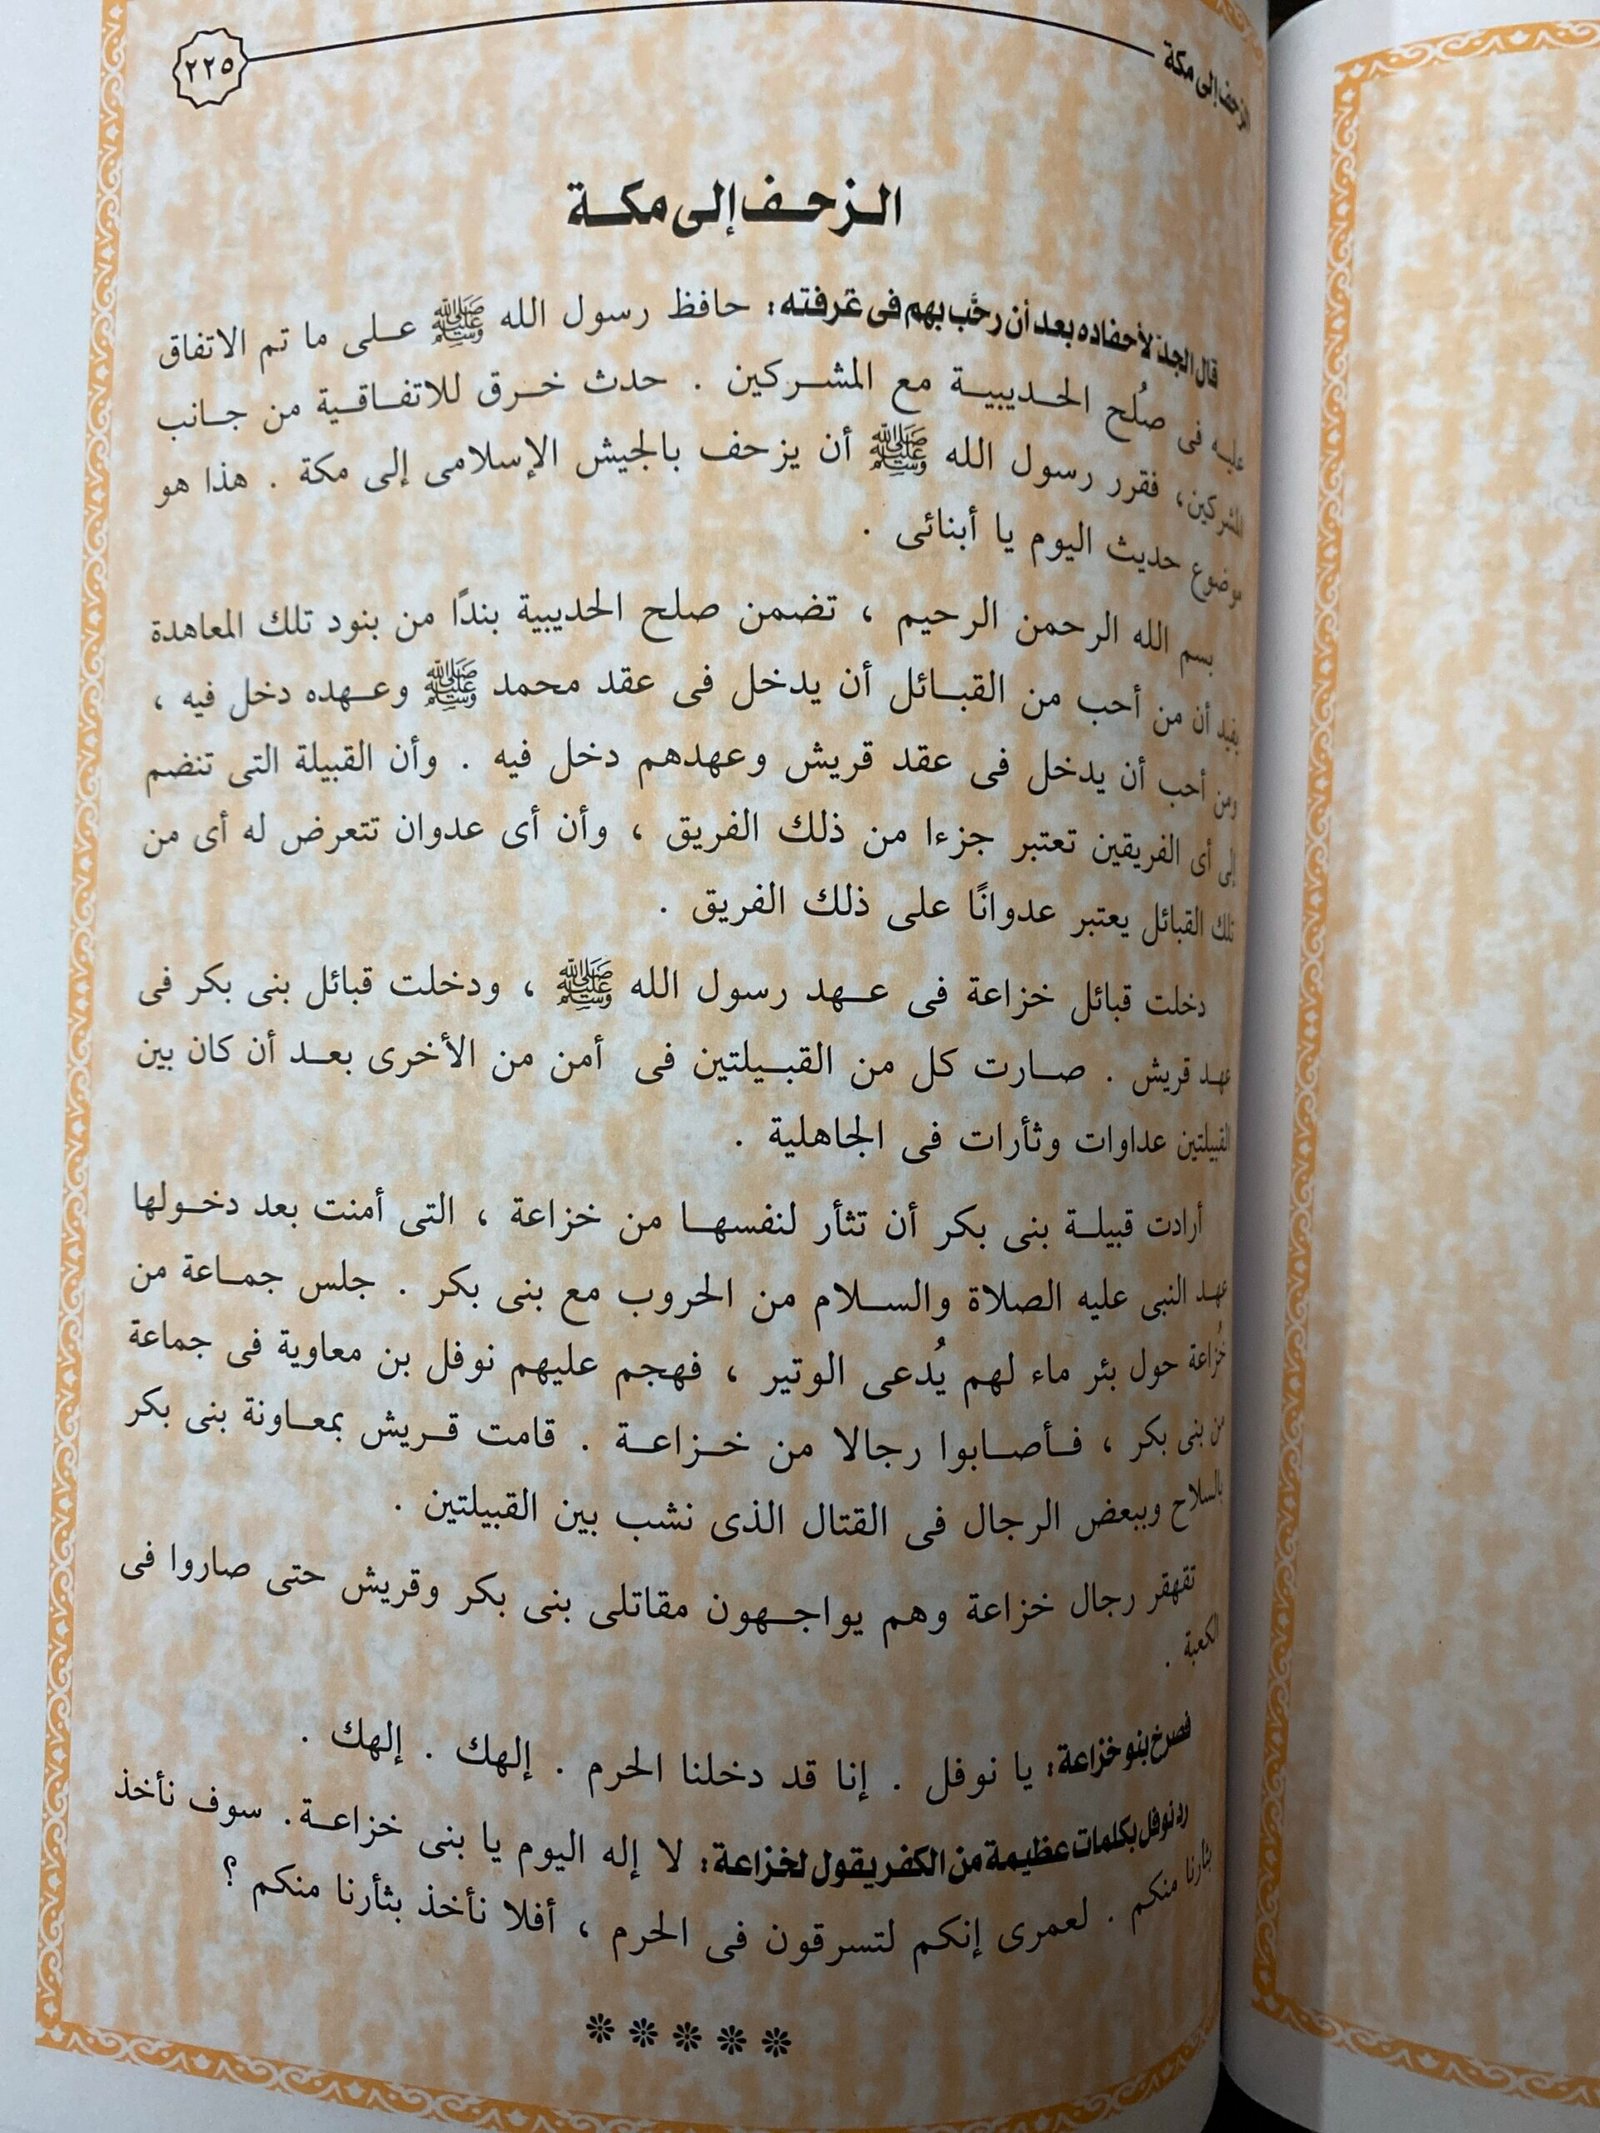 الزحف إلى مكة
٢٢٥
الزحف إلى مكة
قال الجد لأحفاده بعد أن رحَّب بهم فى غرفته: حافظ رسول الله ﷺ على ما تم الاتفاق
عليه فى صُلح الحديبية مع المشركين . حدث خرق للاتفاقية من جانب
المشركين، فقرر رسول الله ﷺ أن يزحف بالجيش الإسلامى إلى مكة . هذا هو
موضوع حديث اليوم يا أبنائى .
بسم الله الرحمن الرحيم ، تضمن صلح الحديبية بندًا من بنود تلك المعاهدة
يفيد أن من أحب من القبائل أن يدخل فى عقد محمد ﷺ وعهده دخل فيه ،
ومن أحب أن يدخل فى عقد قريش وعهدهم دخل فيه . وأن القبيلة التى تنضم
إلى أى الفريقين تعتبر جزءا من ذلك الفريق ، وأن أى عدوان تتعرض له أى من
تلك القبائل يعتبر عدوانًا على ذلك الفريق .
دخلت قبائل خزاعة فى عهد رسول الله ﷺ ، ودخلت قبائل بنى بكر فى
عهد قريش . صارت كل من القبيلتين فى أمن من الأخرى بعد أن كان بين
القبيلتين عداوات وثأرات فى الجاهلية .
أرادت قبيلة بنى بكر أن تثأر لنفسها من خزاعة ، التى أمنت بعد دخولها
عهد النبى عليه الصلاة والسلام من الحروب مع بنى بكر . جلس جماعة من
خُزاعة حول بئر ماء لهم يُدعى الوتير ، فهجم عليهم نوفل بن معاوية فى جماعة
من بنى بكر ، فأصابوا رجالا من خزاعة . قامت قريش بمعاونة بنى بكر
بالسلاح وببعض الرجال فى القتال الذى نشب بين القبيلتين .
تقهقر رجال خزاعة وهم يواجهون مقاتلى بنى بكر وقريش حتى صاروا فى
الكعبة .
فصرخ بنو خزاعة: يا نوفل . إنا قد دخلنا الحرم . إلهك . إلهك .
رد نوفل بكلمات عظيمة من الكفر يقول لخزاعة: لا إله اليوم يا بنى خزاعة. سوف نأخذ
بثأرنا منكم . لعمرى إنكم لتسرقون فى الحرم ، أفلا نأخذ بثأرنا منكم ؟